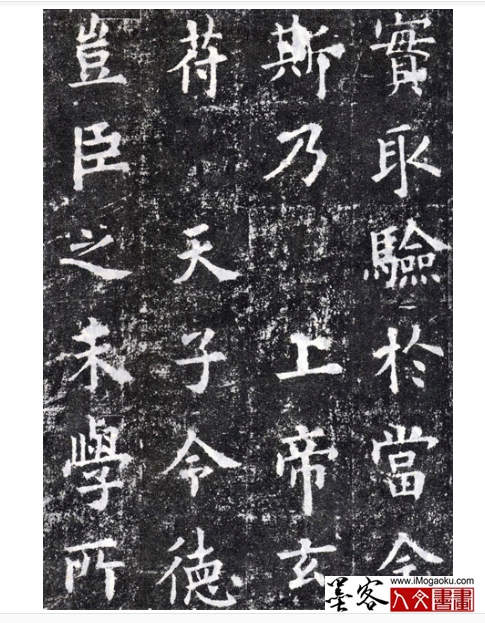 實取驗於當今
斯乃 上帝玄
苻 天子令德
豈臣之末學所
墨客 www.iMogaoku.com
人文書畫